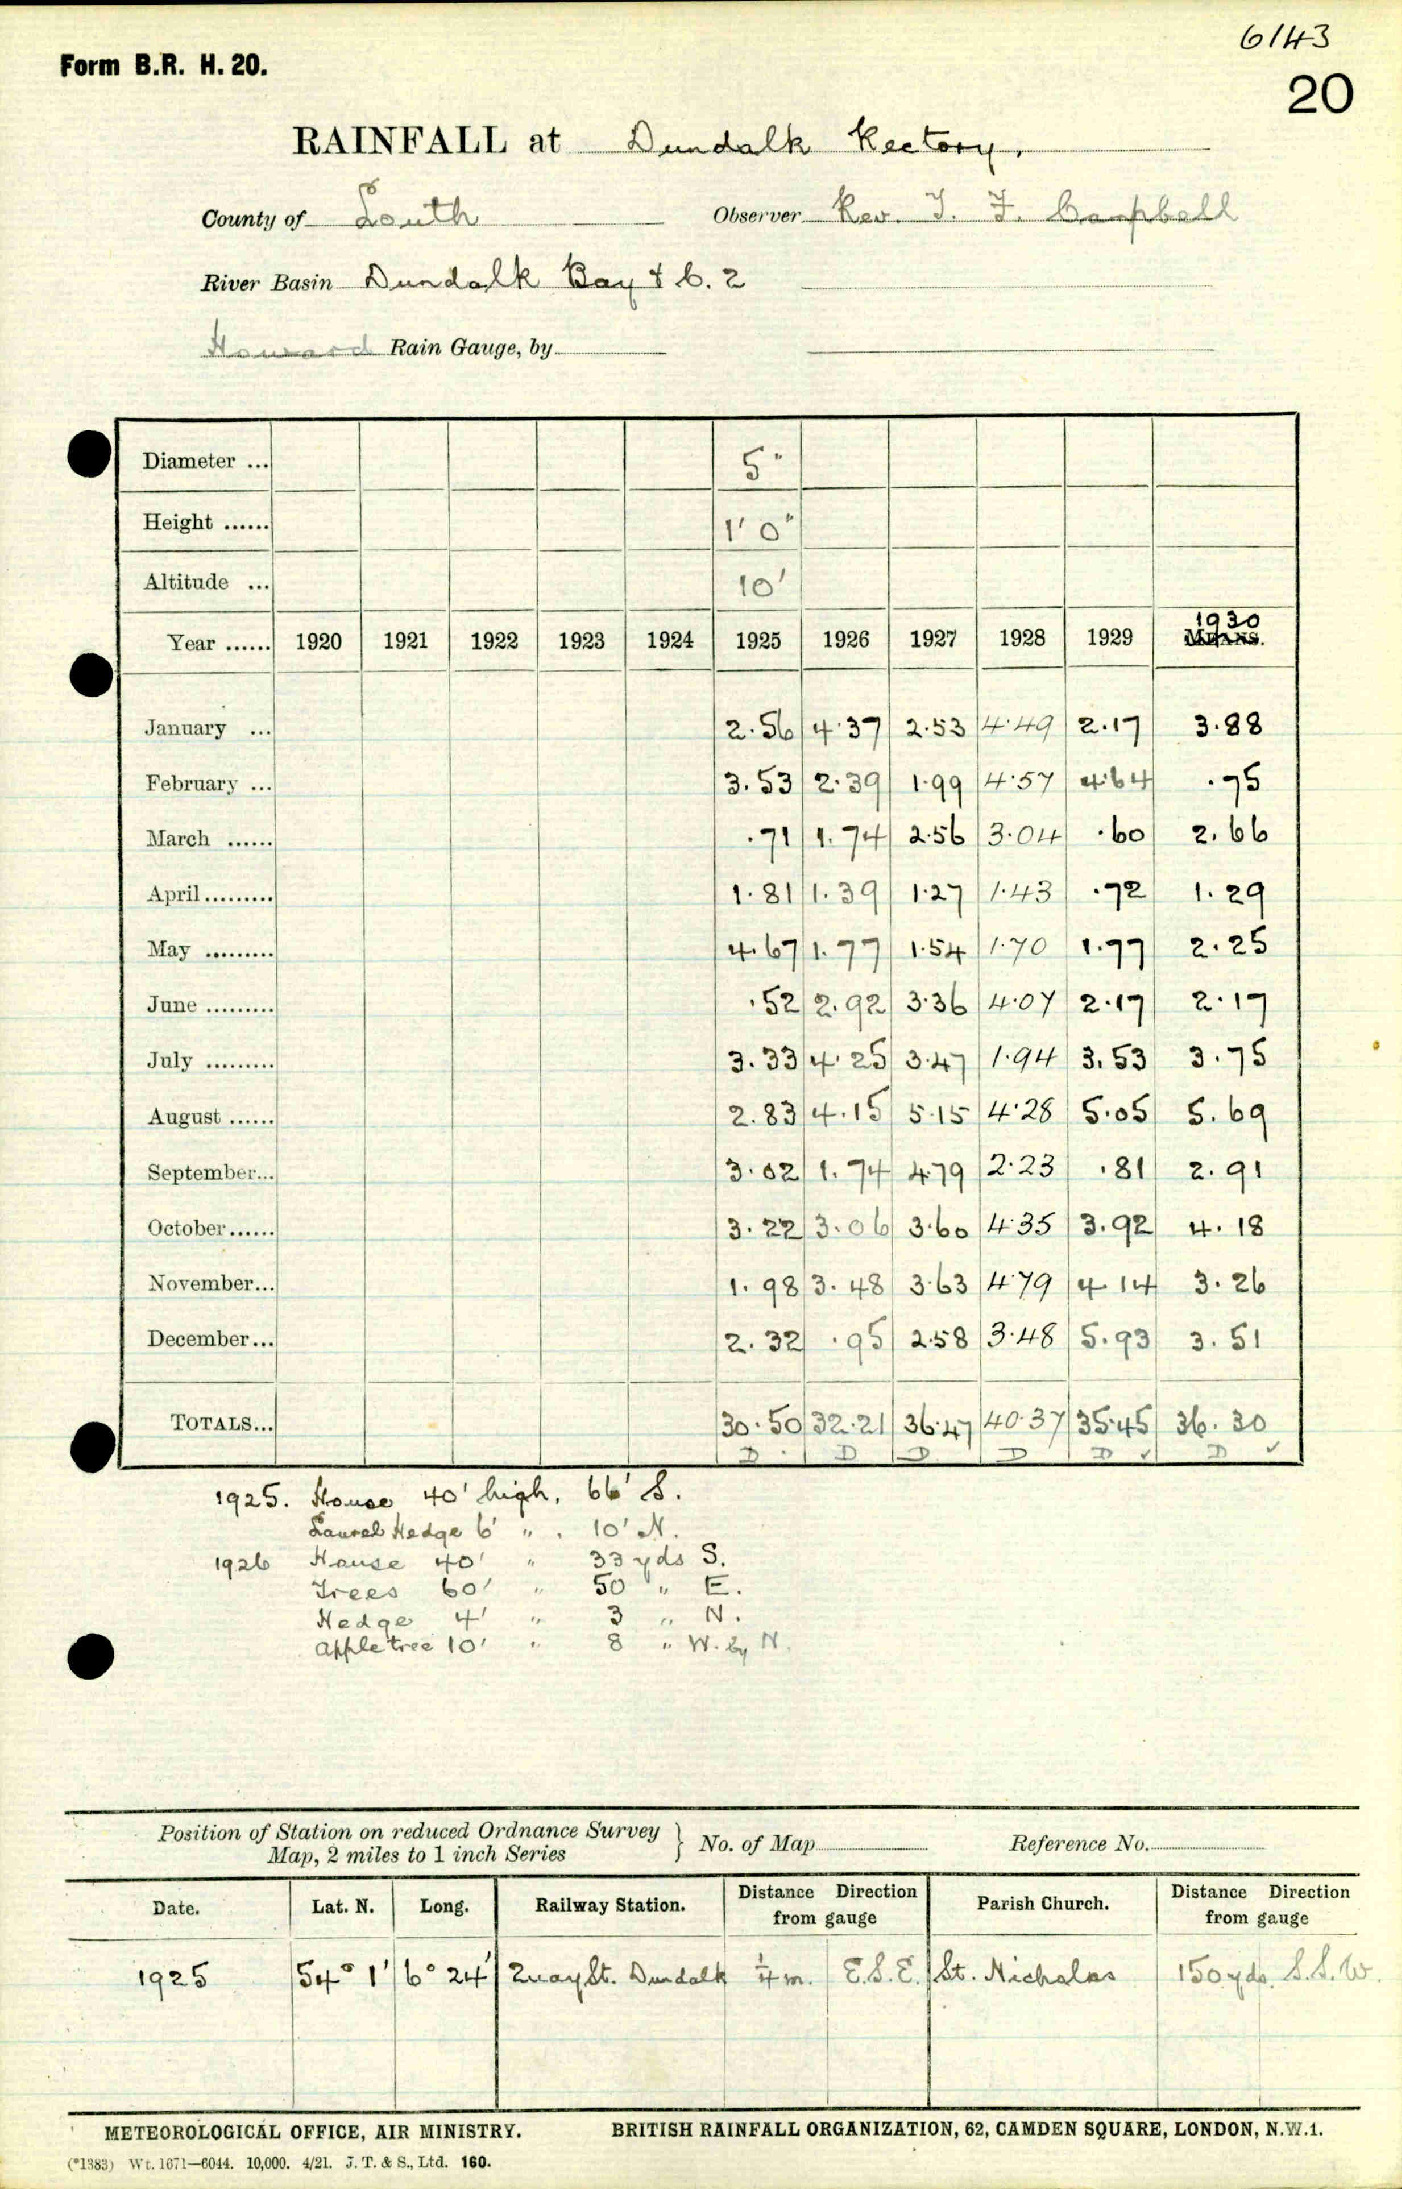 6143
Form B.R. H. 20.
20
RAINFALL at Dundalk Rectory.
County of Louth Observer Rev. T. F. Campbell
River Basin Dundalk Bay & C. 2
Howard Rain Gauge, by
Diameter ... 5"
Height ...... 1' 0"
Altitude ... 10'
Year ...... 1920 1921 1922 1923 1924 1925 1926 1927 1928 1929 1930 MEANS.
January ... 2.56 4.37 2.53 4.49 2.17 3.88
February ... 3.53 2.39 1.99 4.57 4.64 .75
March ...... .71 1.74 2.56 3.04 .60 2.66
April ......... 1.81 1.39 1.27 1.43 .72 1.29
May ......... 4.67 1.77 1.54 1.70 1.77 2.25
June ......... .52 2.92 3.36 4.07 2.17 2.17
July ......... 3.33 4.25 3.47 1.94 3.53 3.75
August ...... 2.83 4.15 5.15 4.28 5.05 5.69
September... 3.02 1.74 4.79 2.23 .81 2.91
October ...... 3.22 3.06 3.60 4.35 3.92 4.18
November... 1.98 3.48 3.63 4.79 4.14 3.26
December... 2.32 .95 2.58 3.48 5.93 3.51
TOTALS... 30.50 32.21 36.47 40.37 35.45 36.30
D D D D D ✓ D ✓
1925. House 40' high, 66' S.
Laurel Hedge 6' " . 10' N.
1926 House 40' " 33 yds S.
Trees 60' " 50 " E.
Hedge 4' " 3 " N.
apple tree 10' " 8 " W. by N.
Position of Station on reduced Ordnance Survey
Map, 2 miles to 1 inch Series } No. of Map Reference No.
Date. Lat. N. Long. Railway Station. Distance Direction from gauge Parish Church. Distance Direction from gauge
1925 54° 1' 6° 24' Quay St. Dundalk ¼ m. E.S.E. St. Nicholas 150 yds. S.S.W.
METEOROLOGICAL OFFICE, AIR MINISTRY. BRITISH RAINFALL ORGANIZATION, 62, CAMDEN SQUARE, LONDON, N.W.1.
(*1383) Wt. 1671—6044. 10,000. 4/21. J. T. & S., Ltd. 160.